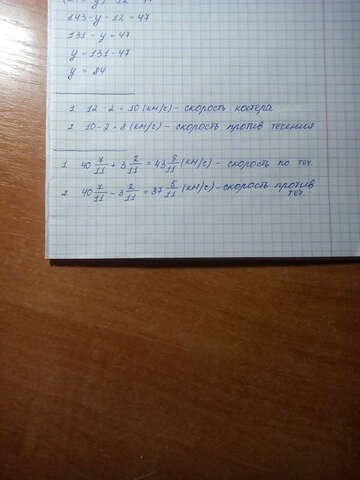 143 - y - 12 = 47
131 - y = 47
y = 131 - 47
y = 84
1. 12 - 2 = 10 (км/г) - скорость катера
2. 10 - 2 = 8 (км/г) - скорость против течения
1. 40 7/11 + 3 2/11 = 43 9/11 (км/г) - скорость по теч.
2. 40 7/11 - 3 2/11 = 37 5/11 (км/г) - скорость против
теч.